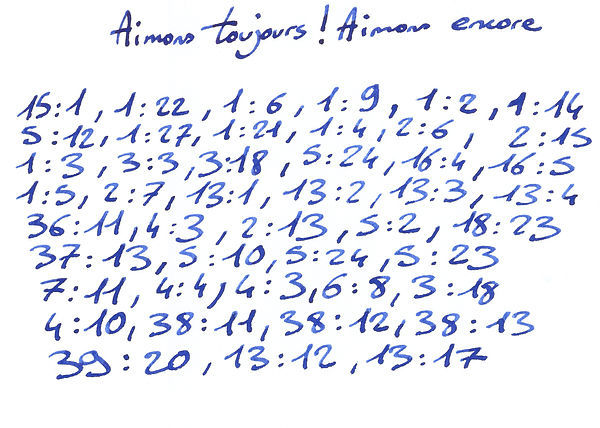 Aimons toujours ! Aimons encore
15:1, 1:22, 1:6, 1:9, 1:2, 1:14
5:12, 1:27, 1:21, 1:4, 2:6, 2:15
1:3, 3:3, 3:18, 5:24, 16:4, 16:5
1:5, 2:7, 13:1, 13:2, 13:3, 13:4
36:11, 4:3, 2:13, 5:2, 18:23
37:13, 5:10, 5:24, 5:23
7:11, 4:4, 4:3, 6:8, 3:18
4:10, 38:11, 38:12, 38:13
39:20, 13:12, 13:17